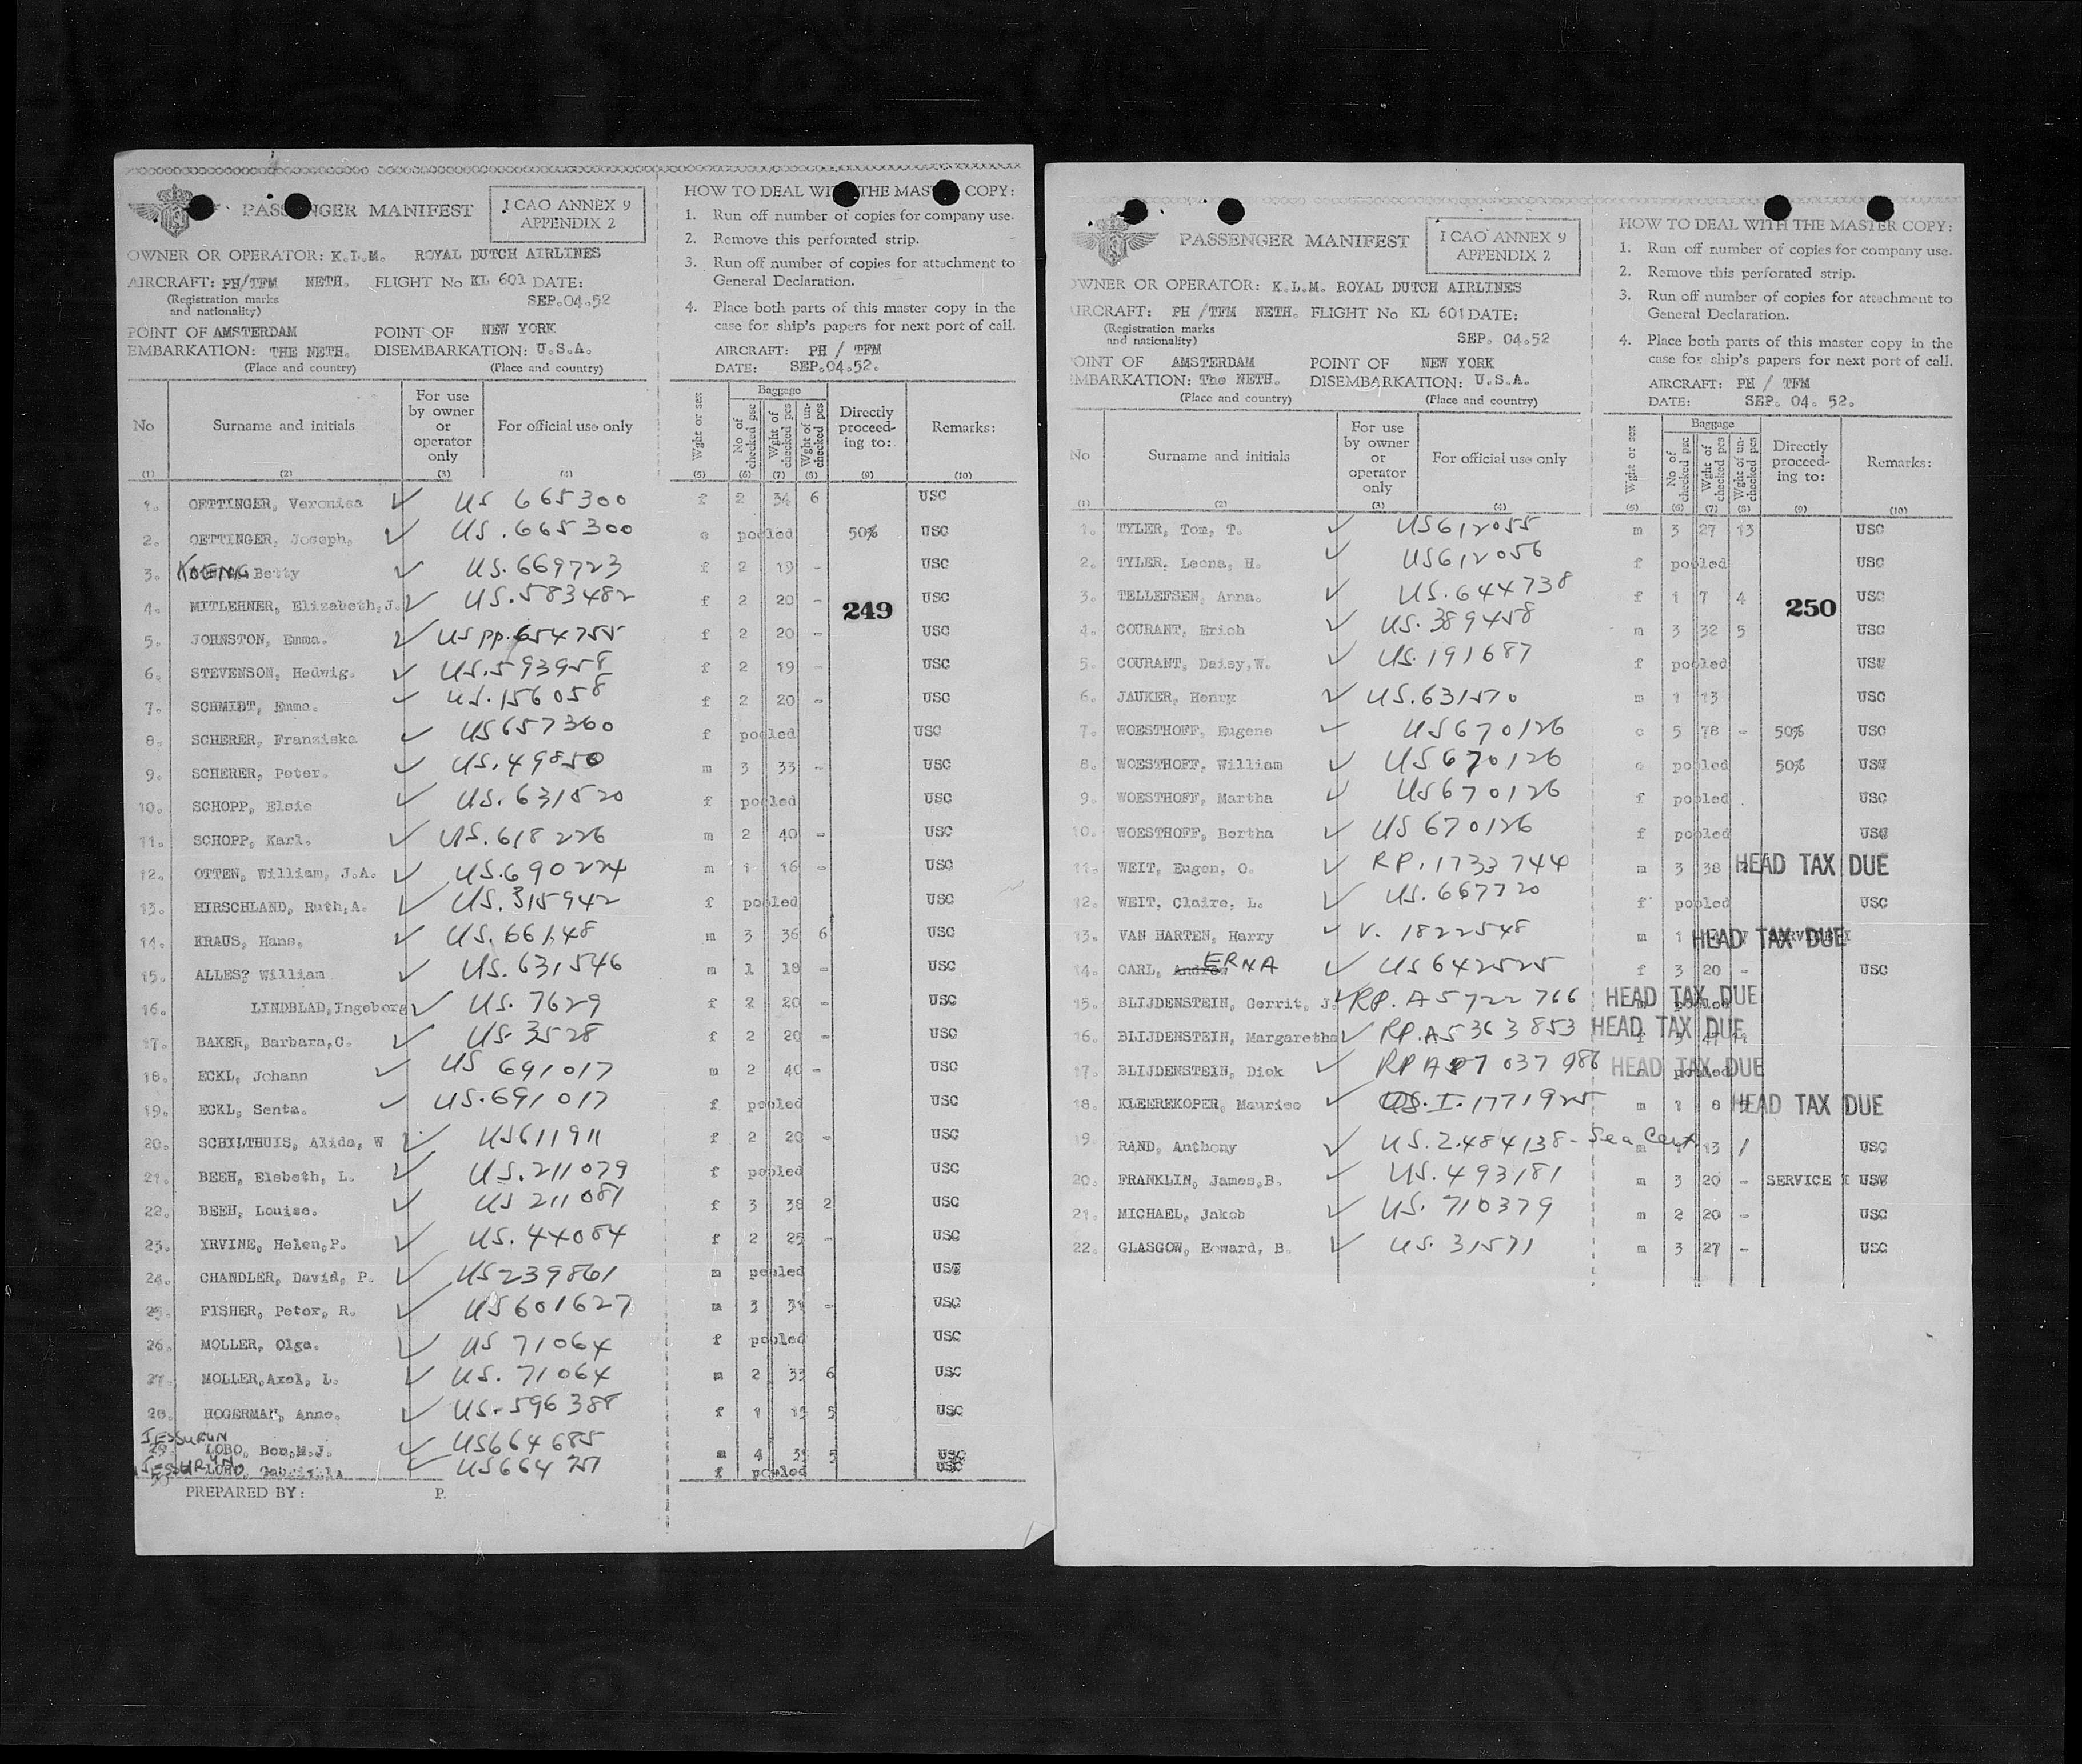 PASSENGER MANIFEST
I CAO ANNEX 9
APPENDIX 2
OWNER OR OPERATOR: K.L.M. ROYAL DUTCH AIRLINES
AIRCRAFT: PH/TFM NETH. FLIGHT No KL 601 DATE:
(Registration marks
and nationality)
SEP.04.52
POINT OF AMSTERDAM POINT OF NEW YORK
EMBARKATION: THE NETH. DISEMBARKATION: U.S.A.
(Place and country) (Place and country)
HOW TO DEAL WITH THE MASTER COPY:
1. Run off number of copies for company use.
2. Remove this perforated strip.
3. Run off number of copies for attachment to
General Declaration.
4. Place both parts of this master copy in the
case for ship's papers for next port of call.
AIRCRAFT: PH / TFM
DATE: SEP.04.52.
No Surname and initials For use by owner or operator only For official use only Wght or sex Baggage No of checked psc Wght of checked pcs Wght of un-checked pcs Directly proceed-ing to: Remarks:
(1) (2) (3) (4) (5) (6) (7) (8) (9) (10)
1. OETTINGER, Veronica ✓ US 665300 f 2 34 6 USC
2. OETTINGER, Joseph, ✓ US.665300 c pooled 50% USC
3. KOENG Betty ✓ US.669723 f 2 19 - USC
4. MITLEHNER, Elizabeth,J. ✓ US.583482 f 2 20 - USC
249
5. JOHNSTON, Emma. ✓ US pp.654755 f 2 20 - USC
6. STEVENSON, Hedwig. ✓ US.593958 f 2 19 - USC
7. SCHMIDT, Emma. ✓ US.156058 f 2 20 - USC
8. SCHERER, Franziska ✓ US657360 f pooled USC
9. SCHERER, Peter. ✓ US.49850 m 3 33 - USC
10. SCHOPP, Elsie ✓ US.631520 f pooled USC
11. SCHOPP, Karl. ✓ US.618226 m 2 40 - USC
12. OTTEN, William, J.A. ✓ US.690224 m 1 16 - USC
13. HIRSCHLAND, Ruth,A. ✓ US.315942 f pooled USC
14. KRAUS, Hans. ✓ US.66148 m 3 36 6 USC
15. ALLES? William ✓ US.631546 m 1 18 - USC
16. LINDBLAD,Ingeborg ✓ US.7629 f 2 20 - USC
17. BAKER, Barbara,C. ✓ US.3528 f 2 20 - USC
18. ECKL, Johann ✓ US 691017 m 2 40 - USC
19. ECKL, Senta. ✓ US.691017 f pooled USC
20. SCHILTHUIS, Alida, W ✓ US611911 f 2 20 - USC
21. BEEH, Elsbeth, L. ✓ US.211079 f pooled USC
22. BEEH, Louise. ✓ US 211081 f 3 38 2 USC
23. IRVINE, Helen,P. ✓ US.44084 f 2 25 - USC
24. CHANDLER, David, P. ✓ US239861 m pooled USC
25. FISHER, Peter, R. ✓ US601627 m 3 - USC
26. MOLLER, Olga. ✓ US 71064 f pooled USC
27. MOLLER,Axel, L. ✓ US.71064 m 2 33 6 USC
28. HOGERMAN, Anne. ✓ US.596388 f 1 15 5 USC
JESSURUN
29. LOBO, Ben,M.J. ✓ US664685 m 4 USC
JESSURUN
30. LOBO, ✓ US664751 f pooled USC
PREPARED BY: P.
PASSENGER MANIFEST
I CAO ANNEX 9
APPENDIX 2
OWNER OR OPERATOR: K.L.M. ROYAL DUTCH AIRLINES
AIRCRAFT: PH /TFM NETH. FLIGHT No KL 601 DATE:
(Registration marks
and nationality)
SEP. 04.52
POINT OF AMSTERDAM POINT OF NEW YORK
EMBARKATION: The NETH. DISEMBARKATION: U.S.A.
(Place and country) (Place and country)
HOW TO DEAL WITH THE MASTER COPY:
1. Run off number of copies for company use.
2. Remove this perforated strip.
3. Run off number of copies for attachment to
General Declaration.
4. Place both parts of this master copy in the
case for ship's papers for next port of call.
AIRCRAFT: PH / TFM
DATE: SEP. 04. 52.
No Surname and initials For use by owner or operator only For official use only Wght or sex Baggage No of checked psc Wght of checked pcs Wght of un-checked pcs Directly proceed-ing to: Remarks:
(1) (2) (3) (4) (5) (6) (7) (8) (9) (10)
1. TYLER, Tom, T. ✓ US612055 m 3 27 13 USC
2. TYLER, Leona, H. ✓ US612056 f pooled USC
3. TELLEFSEN, Anna. ✓ US.644738 f 1 7 4 USC
250
4. COURANT, Erich ✓ US.389458 m 3 32 5 USC
5. COURANT, Daisy,W. ✓ US.191687 f pooled USC
6. JAUKER, Henry ✓ US.631570 m 1 13 USC
7. WOESTHOFF, Eugene ✓ US670126 c 5 78 - 50% USC
8. WOESTHOFF, William ✓ US670126 c pooled 50% USC
9. WOESTHOFF, Martha ✓ US670126 f pooled USC
10. WOESTHOFF, Bertha ✓ US 670126 f pooled USC
11. WEIT, Eugen, O. ✓ RP.1733744 m 3 38 HEAD TAX DUE
12. WEIT, Claire, L. ✓ US.667720 f pooled USC
13. VAN HARTEN, Harry ✓ V. 1822548 m 1 HEAD TAX DUE
14. CARL, Andrew ERNA ✓ US642525 f 3 20 - USC
15. BLIJDENSTEIN, Gerrit, J. ✓ RP.A5722766 HEAD TAX DUE pooled
16. BLIJDENSTEIN, Margaretha ✓ RP.A5363853 HEAD TAX DUE
17. BLIJDENSTEIN, Dick ✓ RP A 7037986 HEAD TAX DUE pooled
18. KLEEREKOPER, Maurice ✓ I.1771925 m 1 8 HEAD TAX DUE
19. RAND, Anthony ✓ US.2.484138 - Sea Cert m 13 1 USC
20. FRANKLIN, James,B. ✓ US.493181 m 3 20 - SERVICE USC
21. MICHAEL, Jakob ✓ US.710379 m 2 20 - USC
22. GLASGOW, Howard, B. ✓ US.31571 m 3 27 - USC